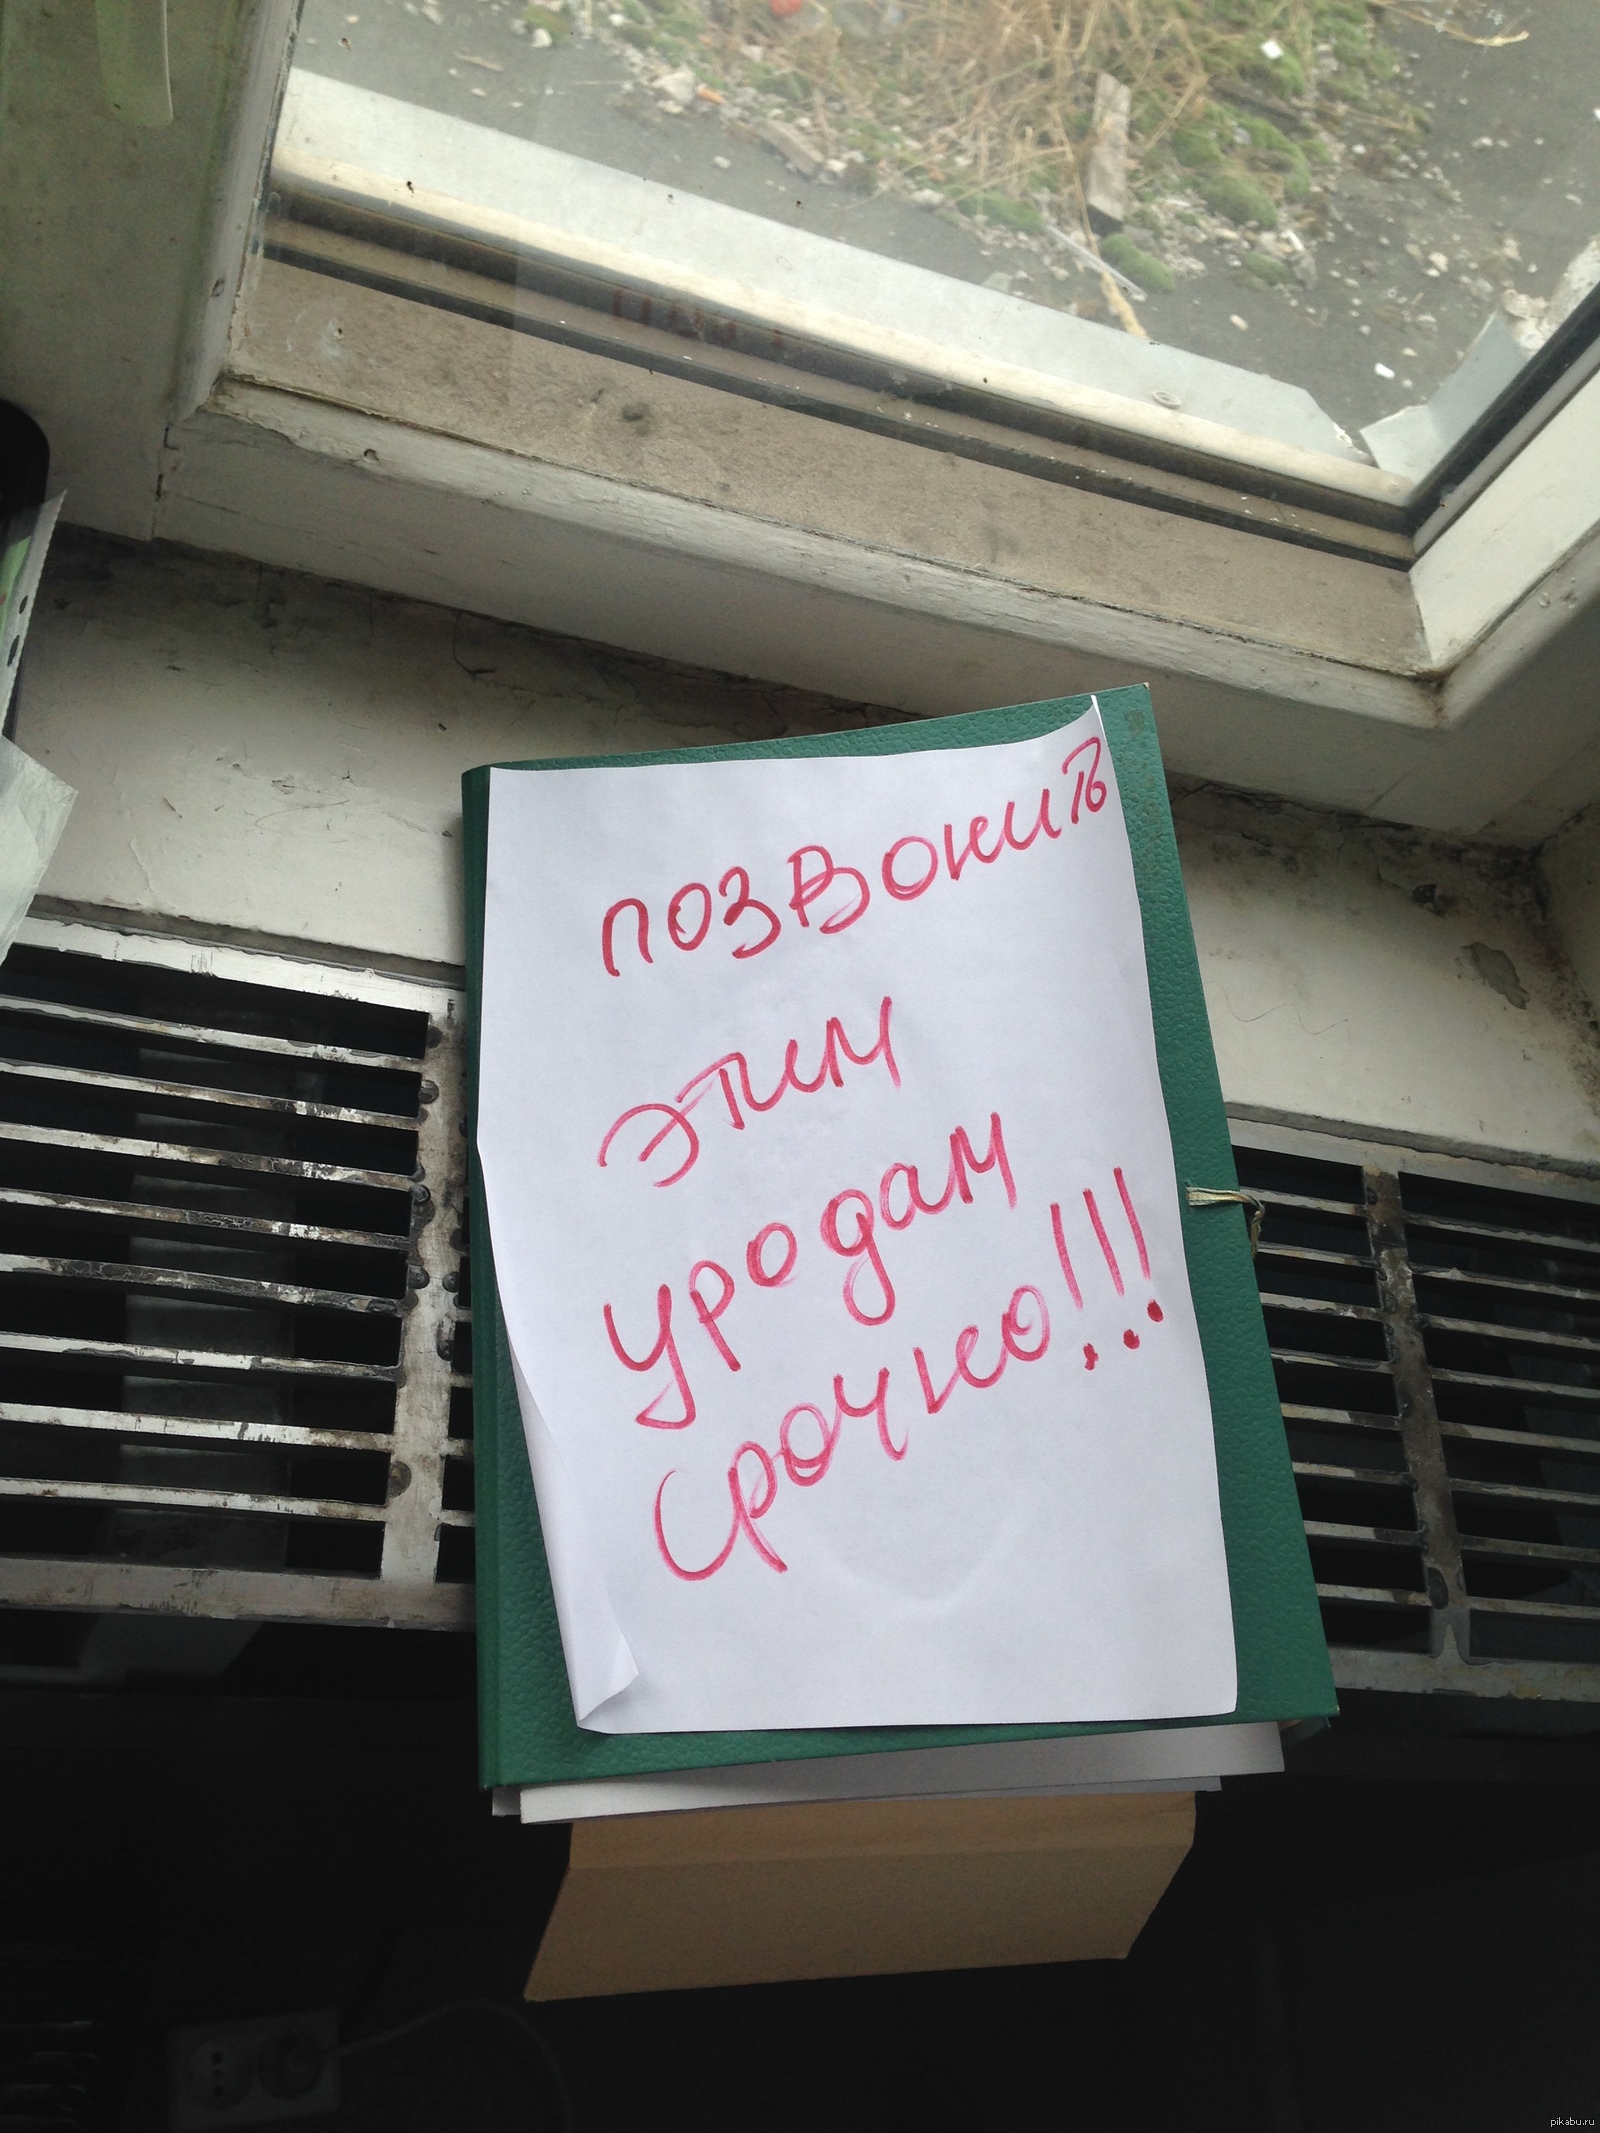 позвонить
этим
уродам
срочно!!!
pikabu.ru